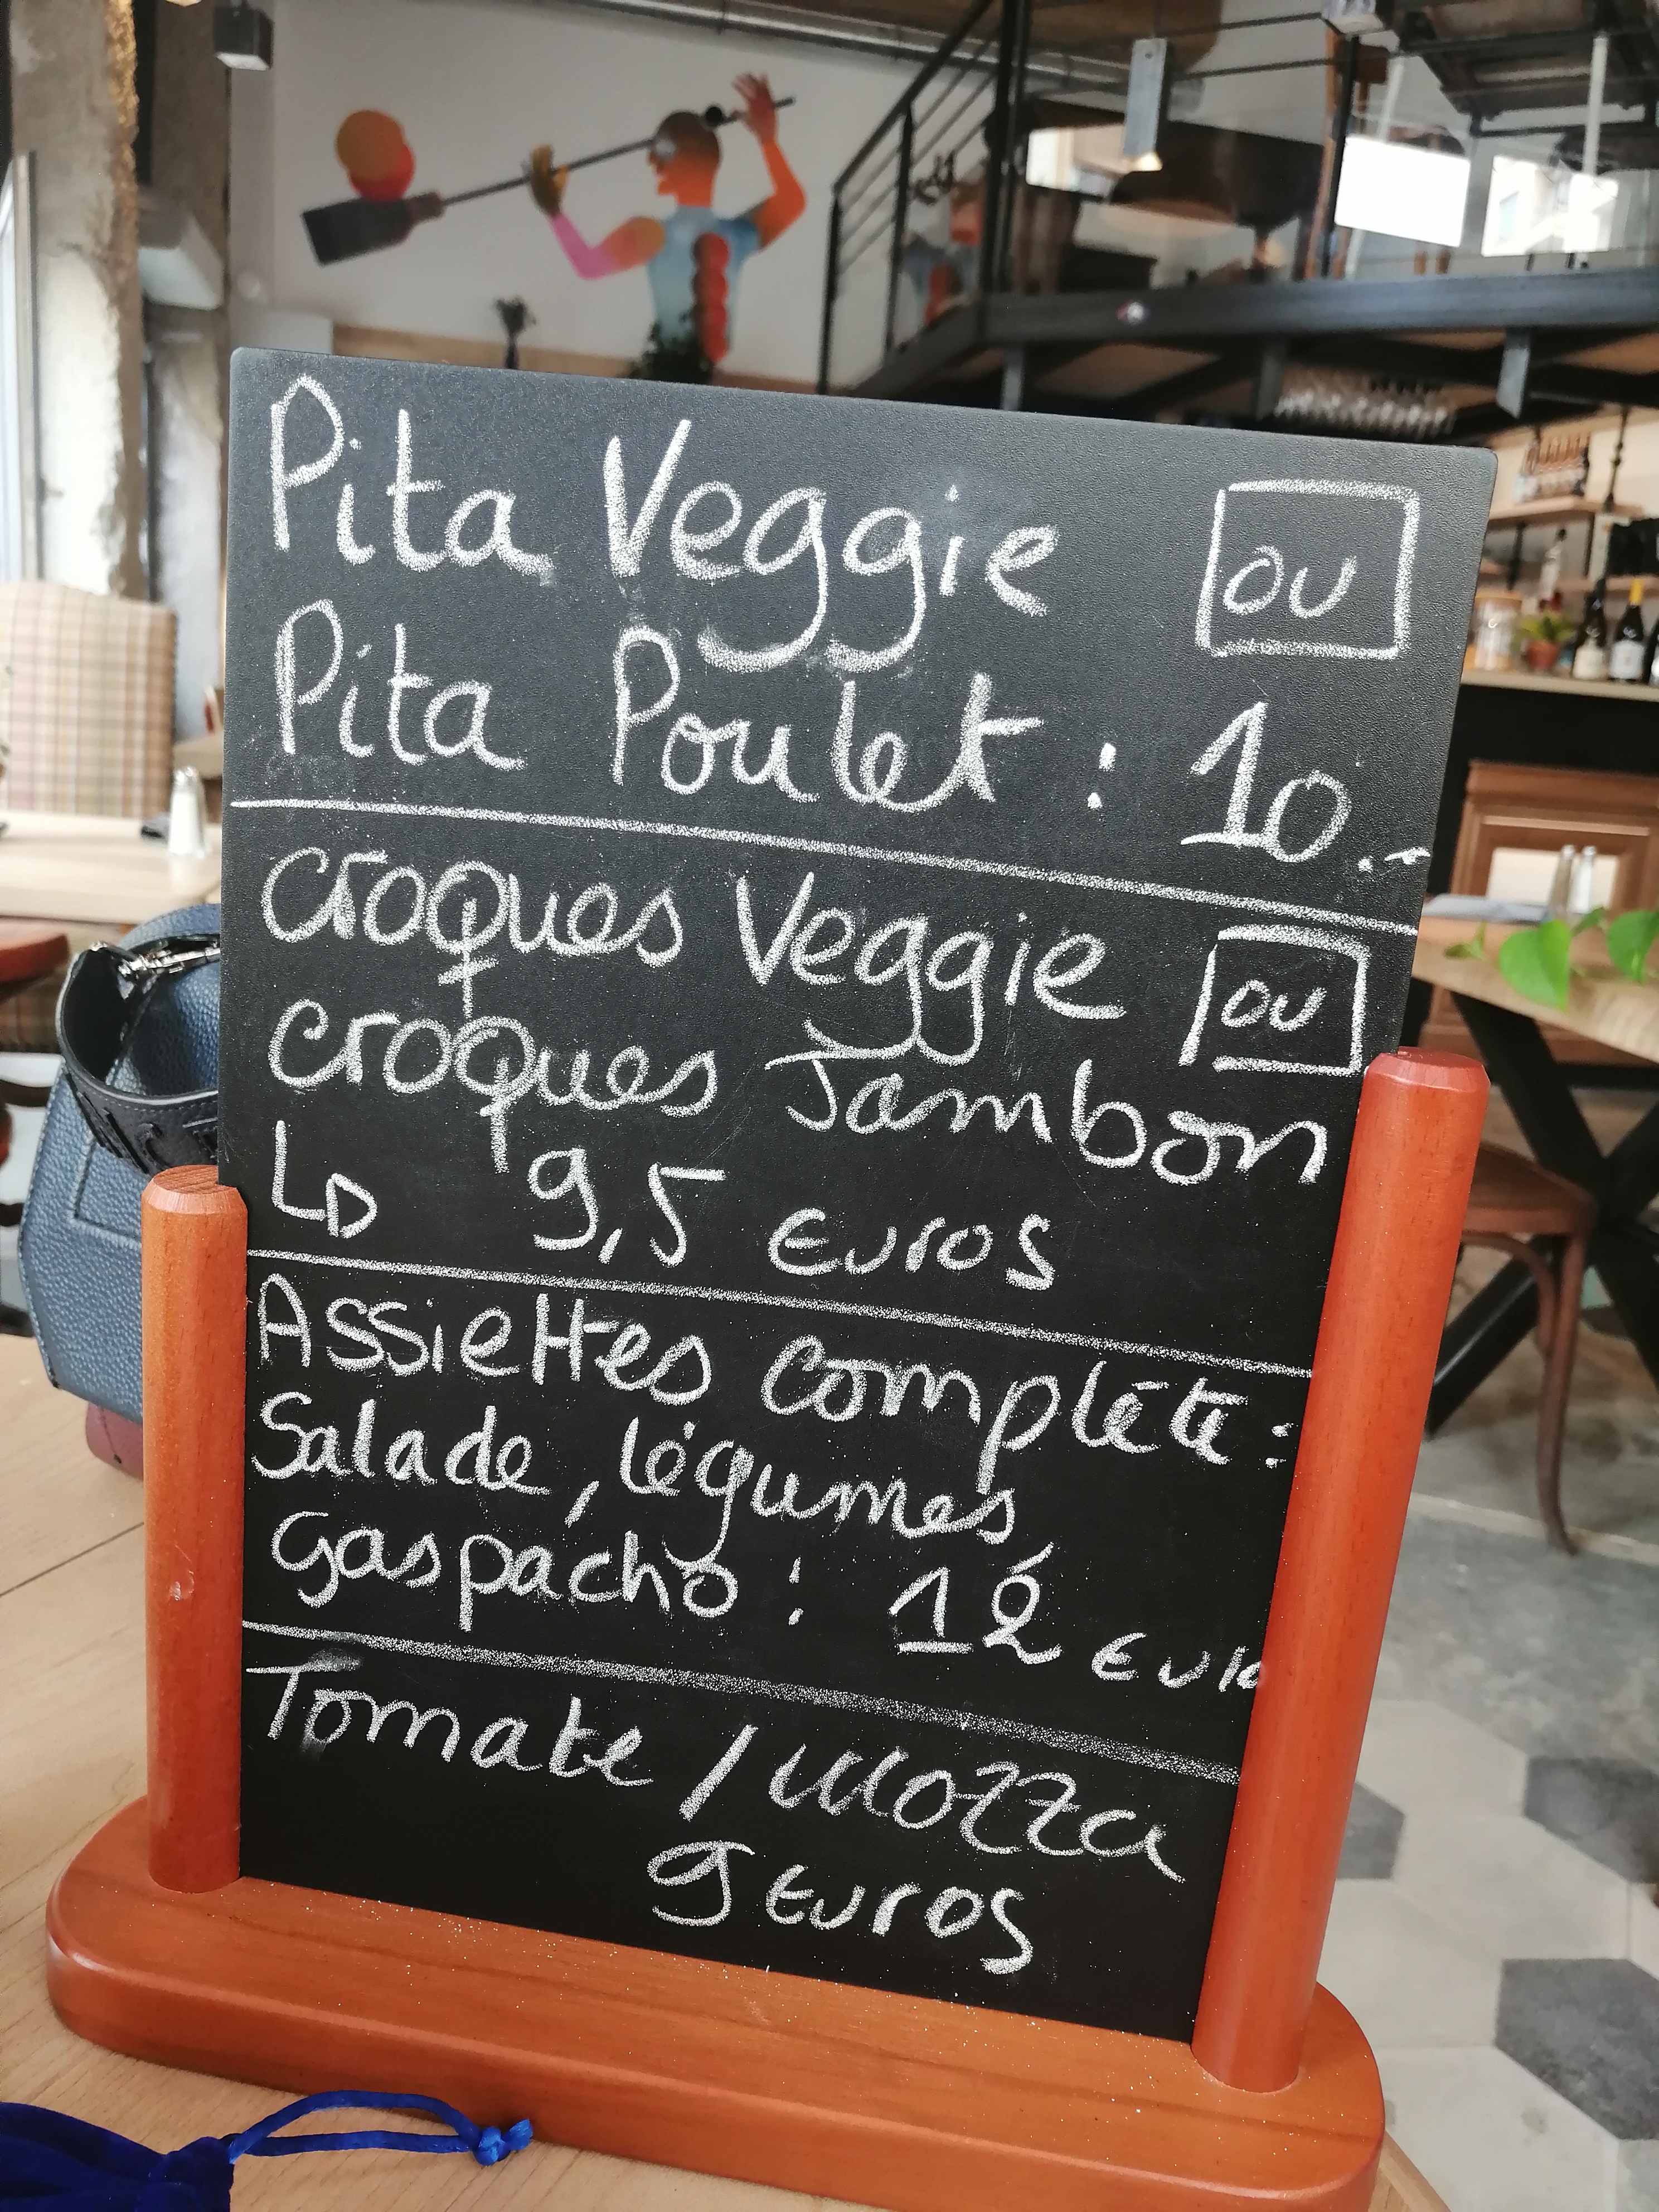 Pita Veggie OU
Pita Poulet : 10.-
Croques Veggie OU
Croques Jambon
↳ 9,5 Euros
Assiettes complète :
Salade, légumes,
gaspacho : 12 Euro
Tomate / Mozza
9 Euros